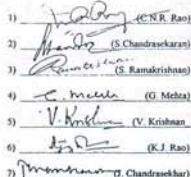 1) (C.N.R. Rao)
2) (S.Chandrasekaran)
3) (S. Ramakrishnan)
4) G. Mehta (G. Mehta)
5) V. Krishnan (V. Krishnan
6) (K.J. Rao)
7) (J. Chandrasekhar)